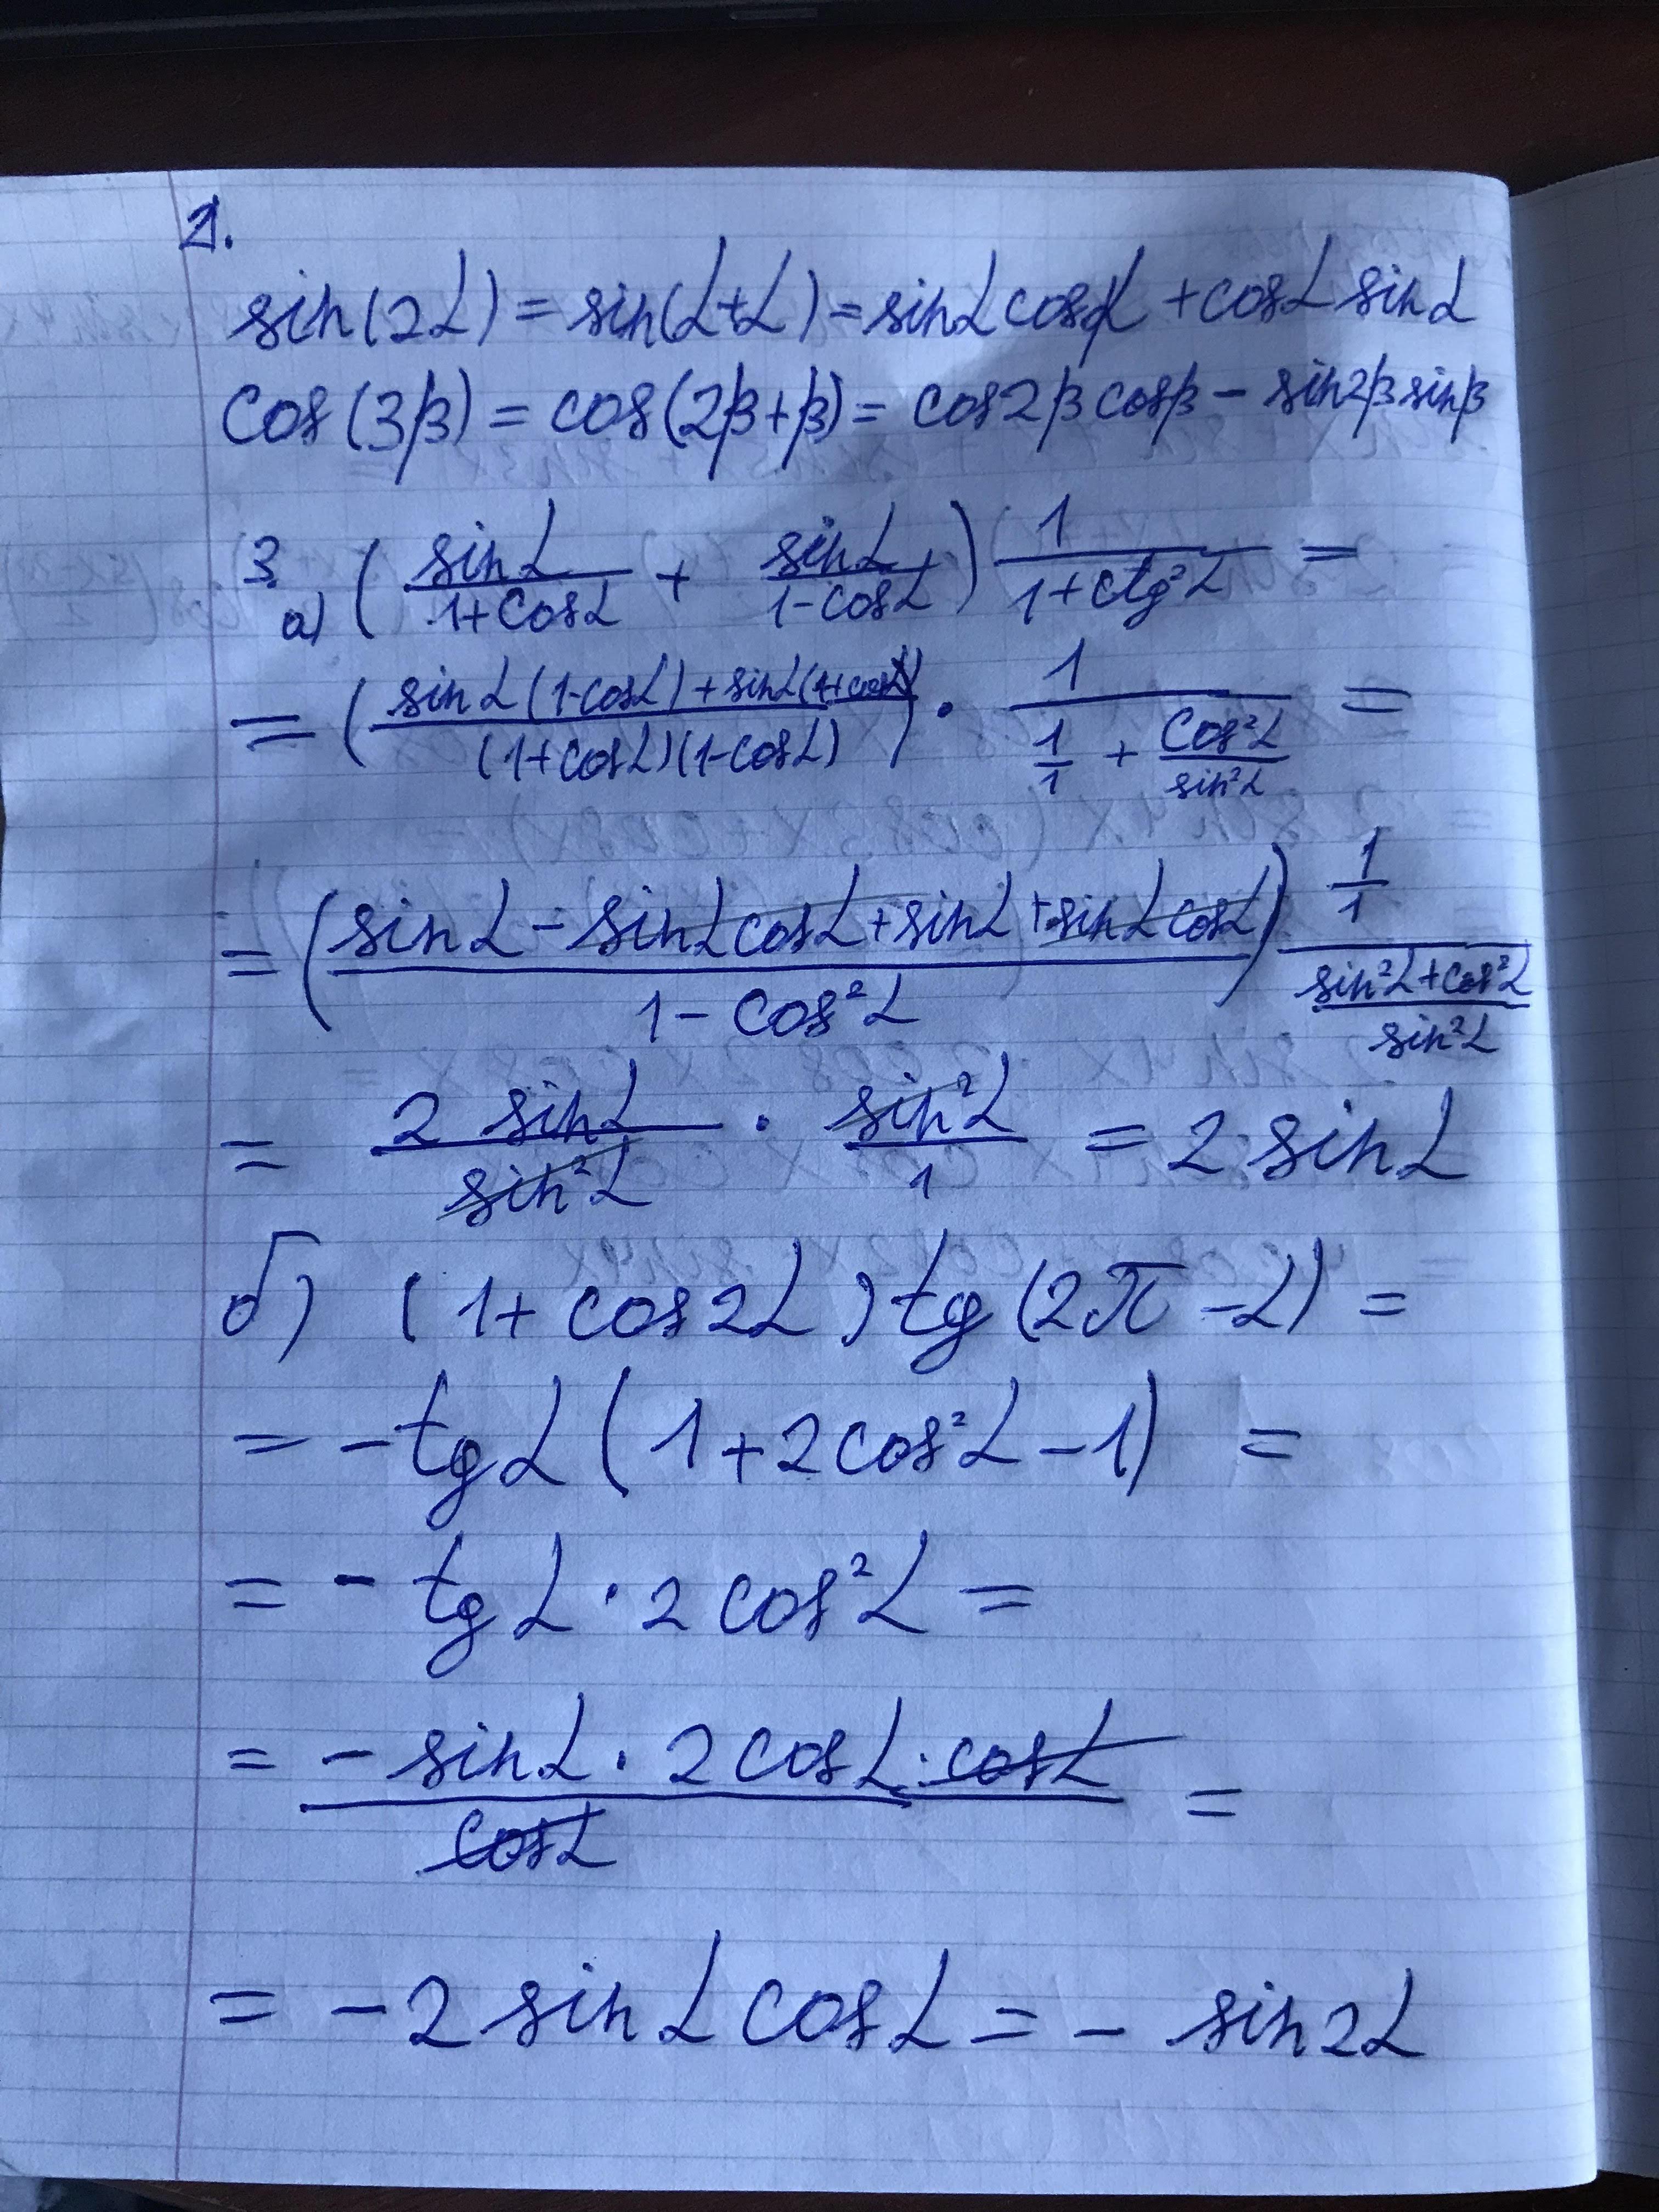 1.
sin(2α) = sin(α+α) = sinα cosα + cosα sinα
cos(3β) = cos(2β+β) = cos2β cosβ − sin2β sinβ
3. а) (sinα/(1+cosα) + sinα/(1-cosα)) 1/(1+ctg²α) =
= (sinα(1-cosα)+sinα(1+cosα)/(1+cosα)(1-cosα)) · 1/(1/1 + cos²α/sin²α) =
= (sinα − sinα cosα + sinα + sinα cosα/1 − cos²α) 1/1/(sin²α+cos²α/sin²α)
= 2 sinα/sin²α · sin²α/1 = 2 sinα
б) (1+cos2α) tg(2π−α) =
= −tgα (1+2cos²α−1) =
= − tgα · 2cos²α =
= −sinα · 2cosα · cosα/cosα =
= −2 sinα cosα = − sin2α